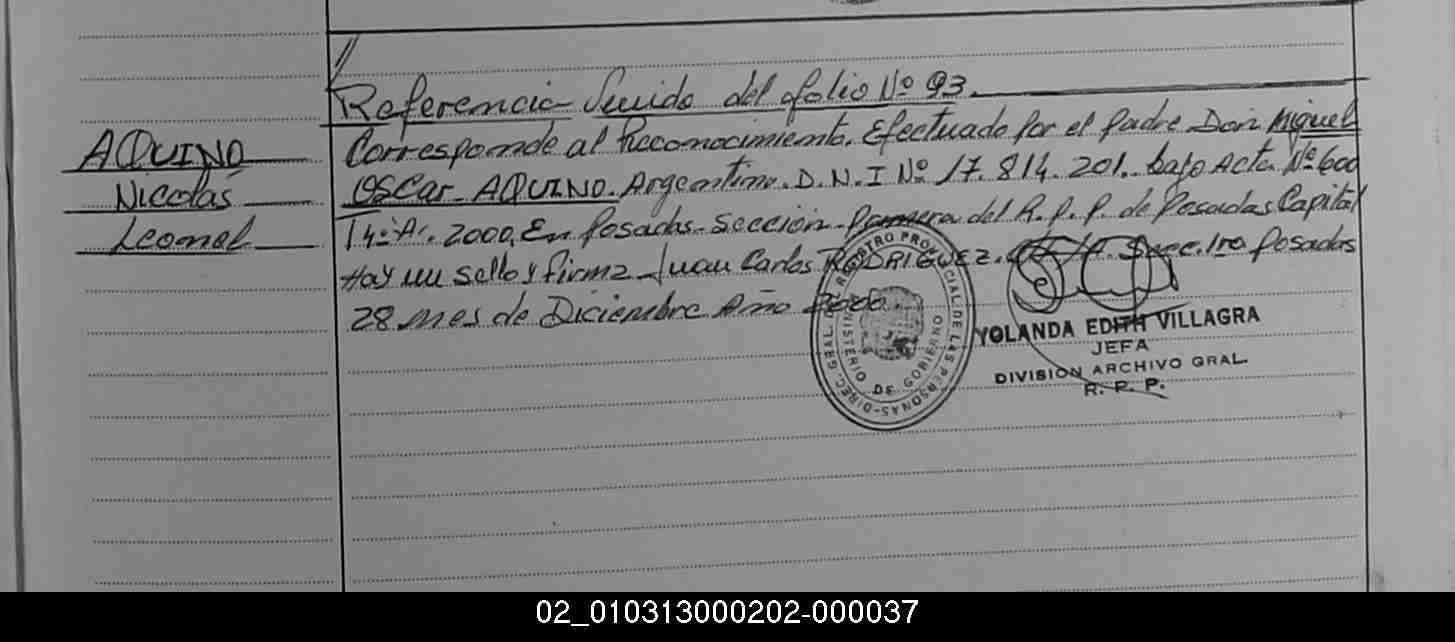 Referencia Seuido del folio Nº 93.
AQUINO
Nicolás
Leonel
Corresponde al Reconocimiento. Efectuado por el padre Don Miguel
OSCAR AQUINO. Argentino. D.N.I Nº 17.814.201. bajo Acta Nº 600
Tº 4º A. 2000, En Posadas. Sección Primera del R.P.P. de Posadas Capital
Hay un sello y firma Juan Carlos RODRIGUEZ. Secc. 1ra Posadas
28 mes de Diciembre Año 2000.
REGISTRO PROVINCIAL DE LAS PERSONAS-DIREC. GRAL.
MINISTERIO DE GOBIERNO
YOLANDA EDITH VILLAGRA
JEFA
DIVISION ARCHIVO GRAL.
R. P. P.
02_010313000202-000037